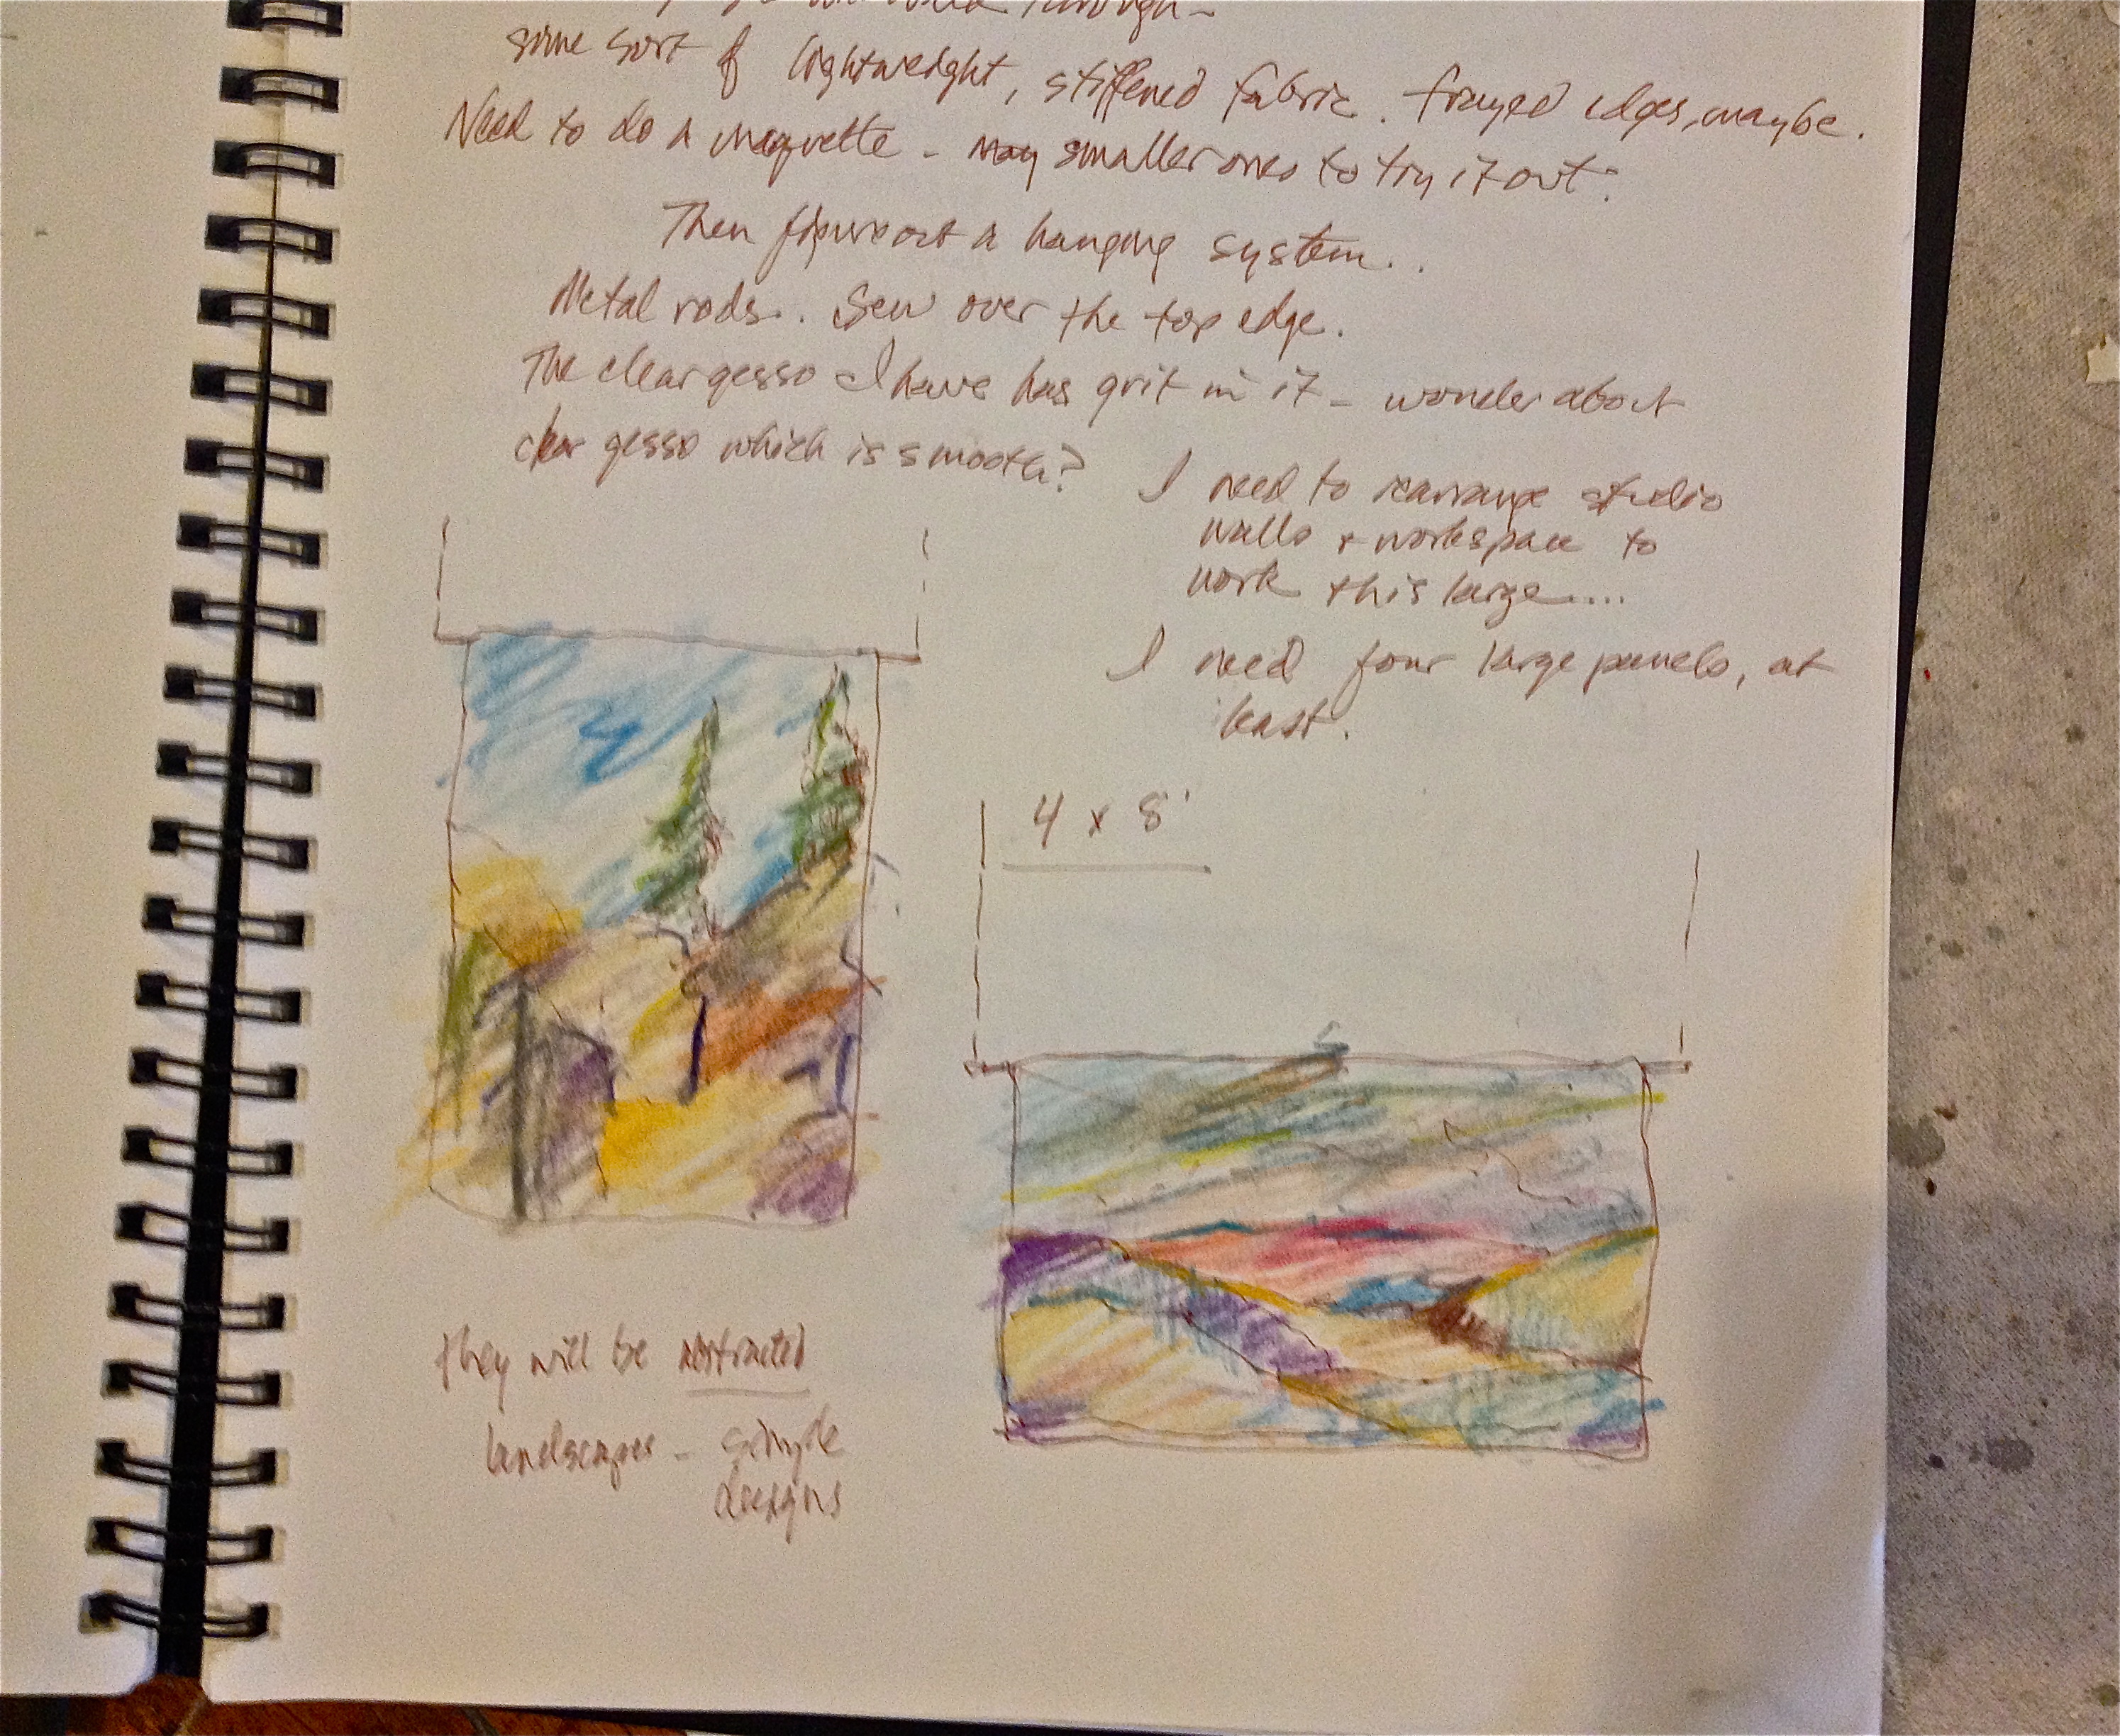 through -
some sort of lightweight, stiffened fabric. frayed edges, maybe.
Need to do a maquette - may smaller ones to try it out.
Then figure out a hanging system..
Metal rods.. Sew over the top edge.
The clear gesso I have has grit in it - wonder about
clear gesso which is smooth?
I need to rearrange studio
walls + workspace to
work this large....
I need four large panels, at
least.
4 x 8'
they will be abstracted
landscapes - simple
designs